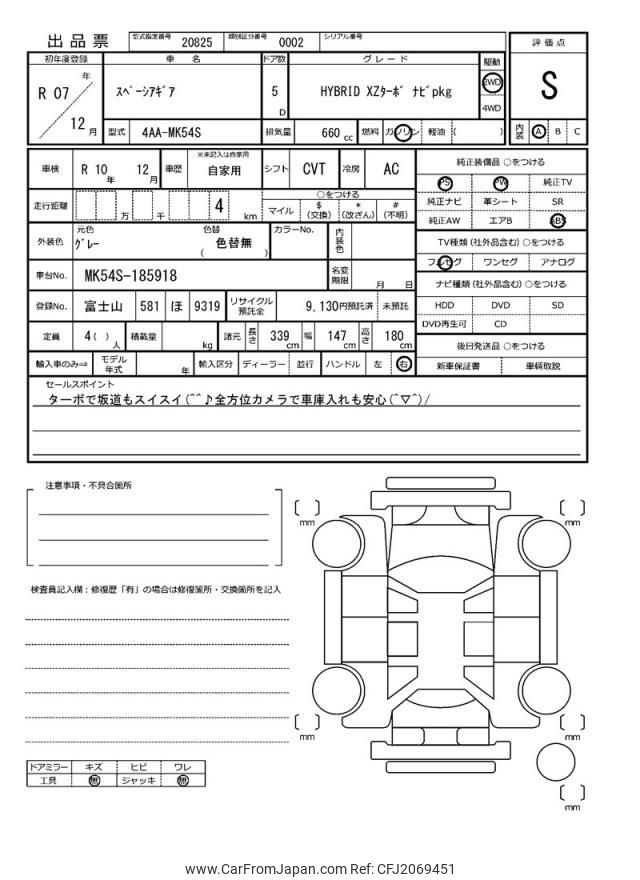 出品票 型式指定番号 20825 類別区分番号 0002 シリアル番号
評価点
S
初年度登録 車名 ドア数 グレード 駆動
R 07 年 12 月 ｽﾍﾟｰｼｱｷﾞｱ 5 D HYBRID XZﾀｰﾎﾞ ﾅﾋﾞpkg 2WD
4WD
型式 4AA-MK54S 排気量 660 cc 燃料 ガソリン 軽油 ( )
内装 A B C
車検 R 10 年 12 月 車歴 ※未記入は自家用 自家用 シフト CVT 冷房 AC
走行距離 万 千 4 km
○をつける
マイル $ (交換) * (改ざん) # (不明)
外装色 元色 ｸﾞﾚｰ 色替 ( 色替無 ) カラーNo. 内装色
車台No. MK54S-185918 名変期限 月 日
登録No. 富士山 581 ほ 9319 リサイクル預託金 9,130円預託済 未預託
定員 4( ) 人 積載量 kg 諸元 長さ 339 cm 幅 147 cm 高さ 180 cm
輸入車のみ⇒ モデル年式 年 輸入区分 ディーラー 並行 ハンドル 左 右
純正装備品 ○をつける
PS PW 純正TV
純正ナビ 革シート SR
純正AW エアB ABS
TV種類 (社外品含む) ○をつける
フルセグ ワンセグ アナログ
ナビ種類 (社外品含む) ○をつける
HDD DVD SD
DVD再生可 CD
後日発送品 ○をつける
新車保証書 車輌取説
セールスポイント
ターボで坂道もスイスイ(^^♪全方位カメラで車庫入れも安心(^▽^)/
注意事項・不具合箇所
検査員記入欄：修復歴「有」の場合は修復箇所・交換箇所を記入
mm
mm
mm
mm
mm
ドアミラー キズ ヒビ ワレ
工具 無 ジャッキ 無
www.CarFromJapan.com Ref: CFJ2069451